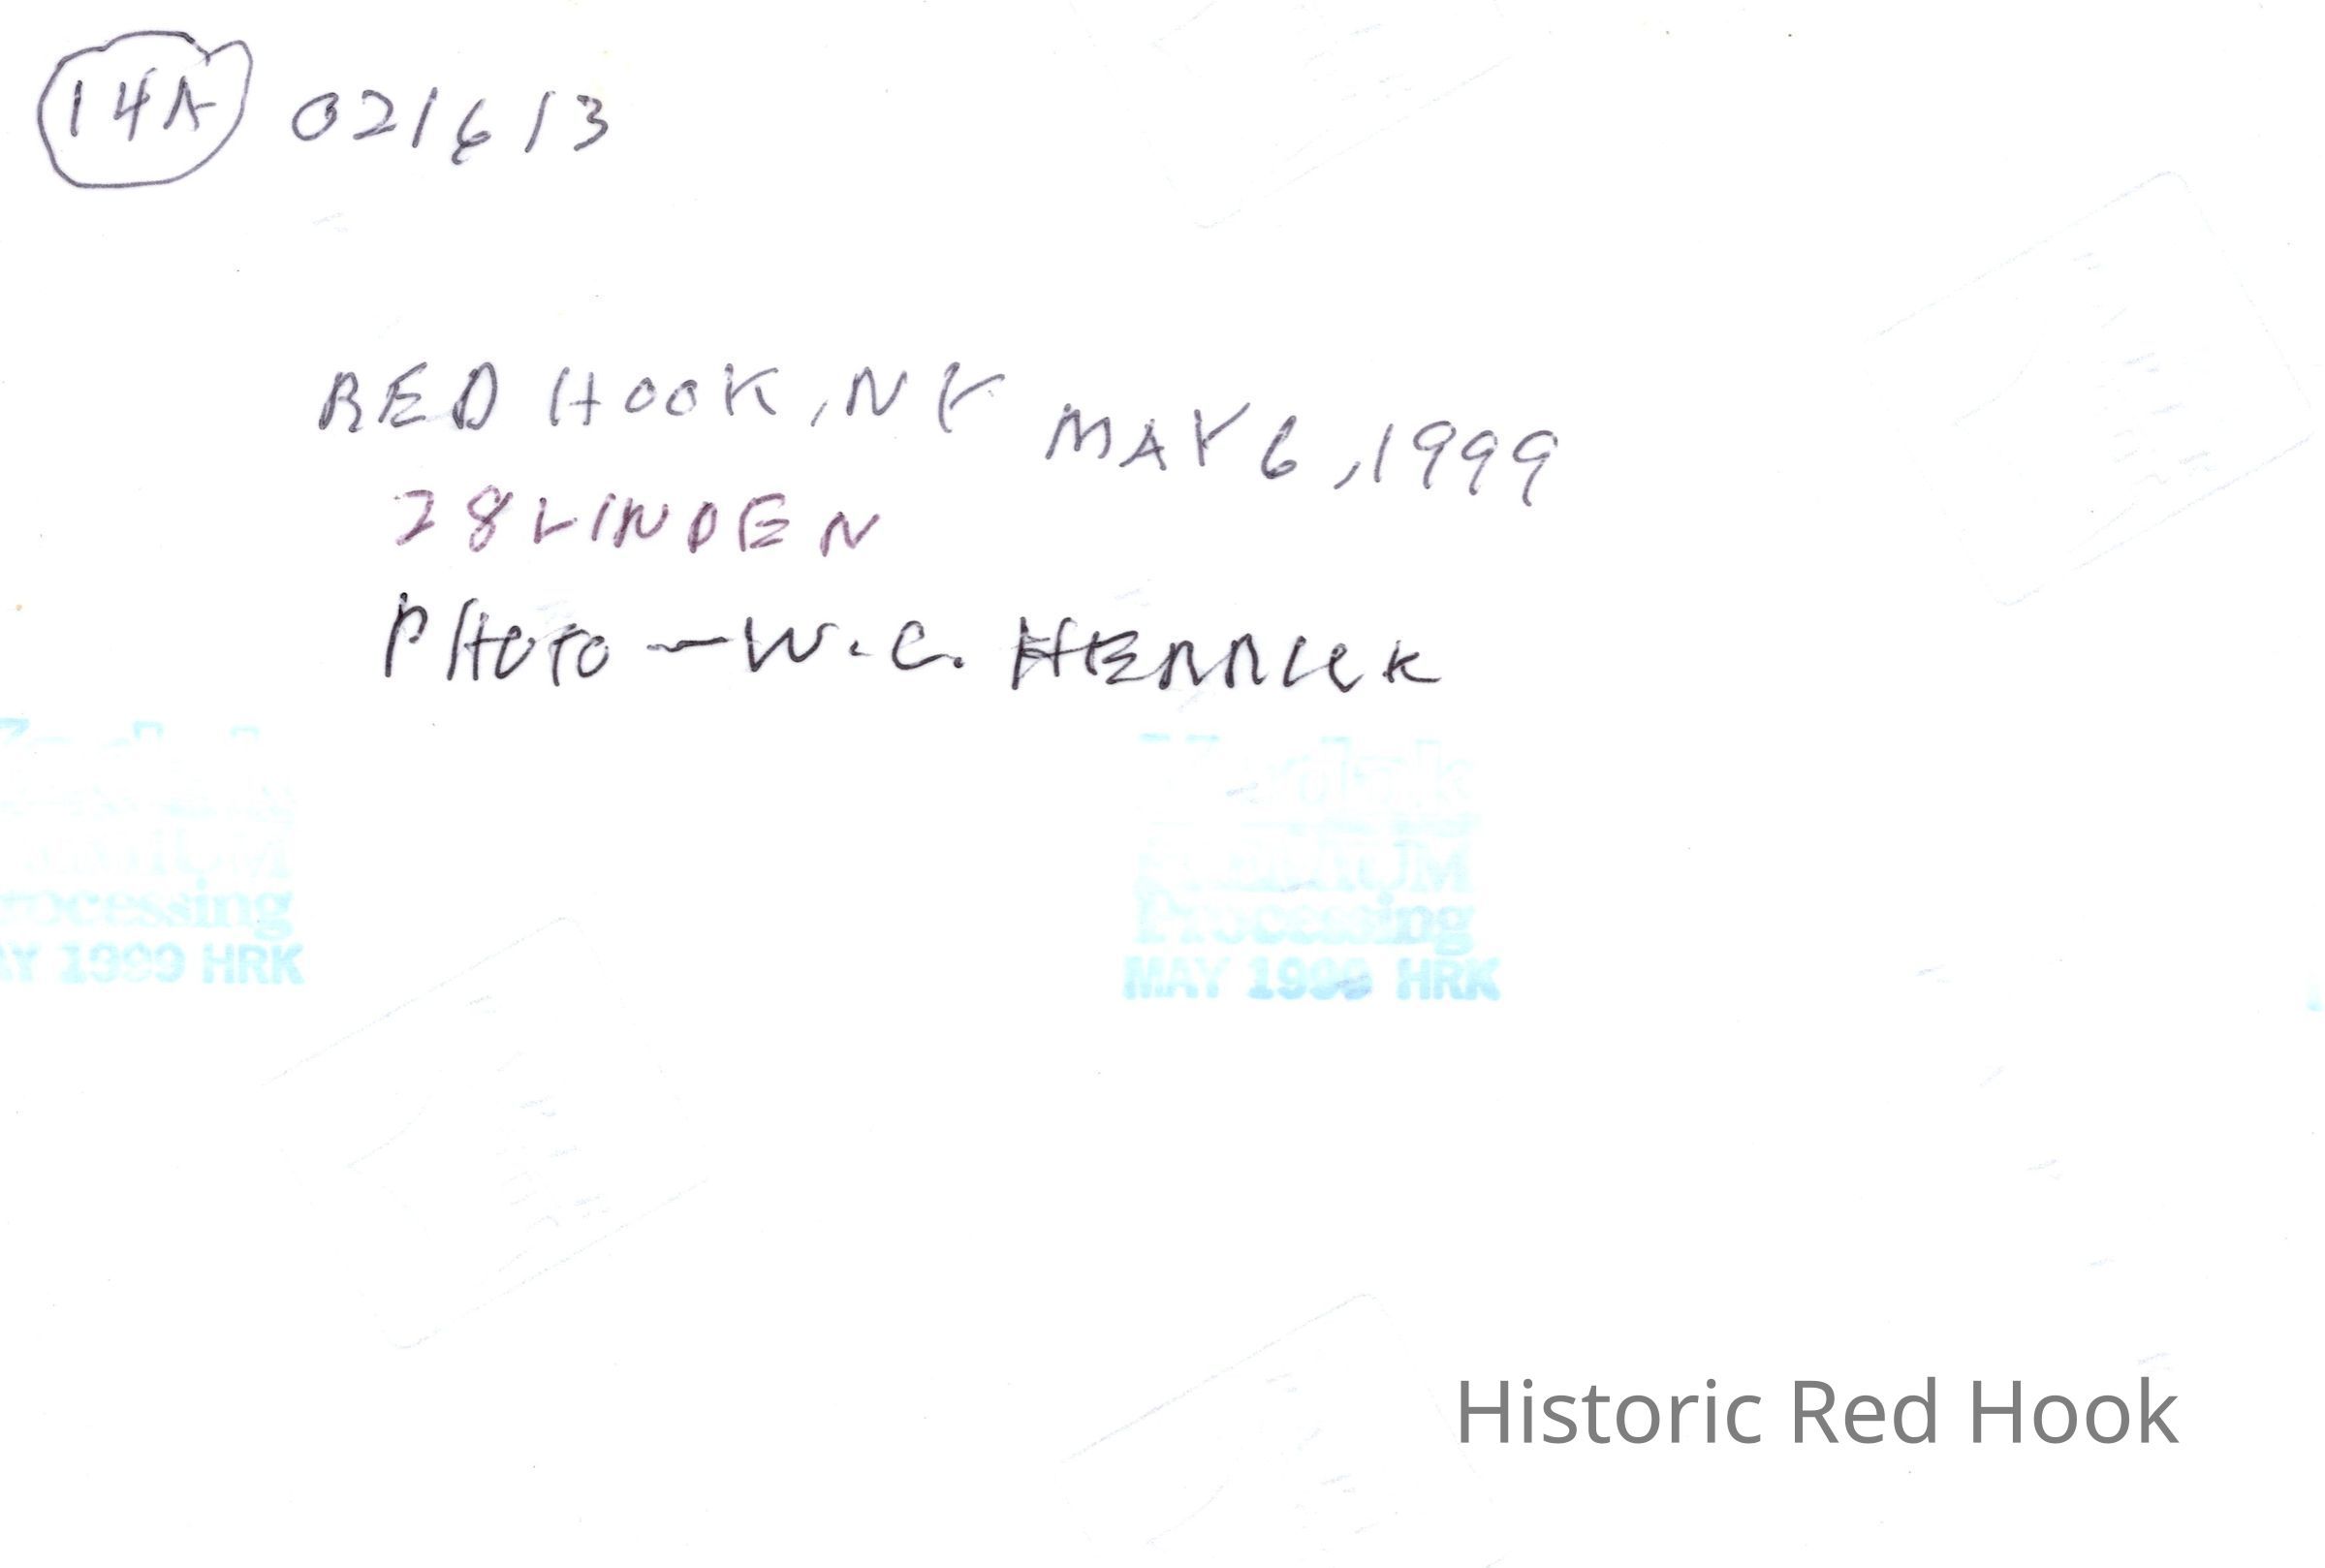 14A 021613
RED HOOK, NY MAY 6, 1999
28 LINDEN
PHOTO — W. C. HERRICK
Kodak
Processing
rocessing
MAY 1999 HRK
AY 1999 HRK
Historic Red Hook